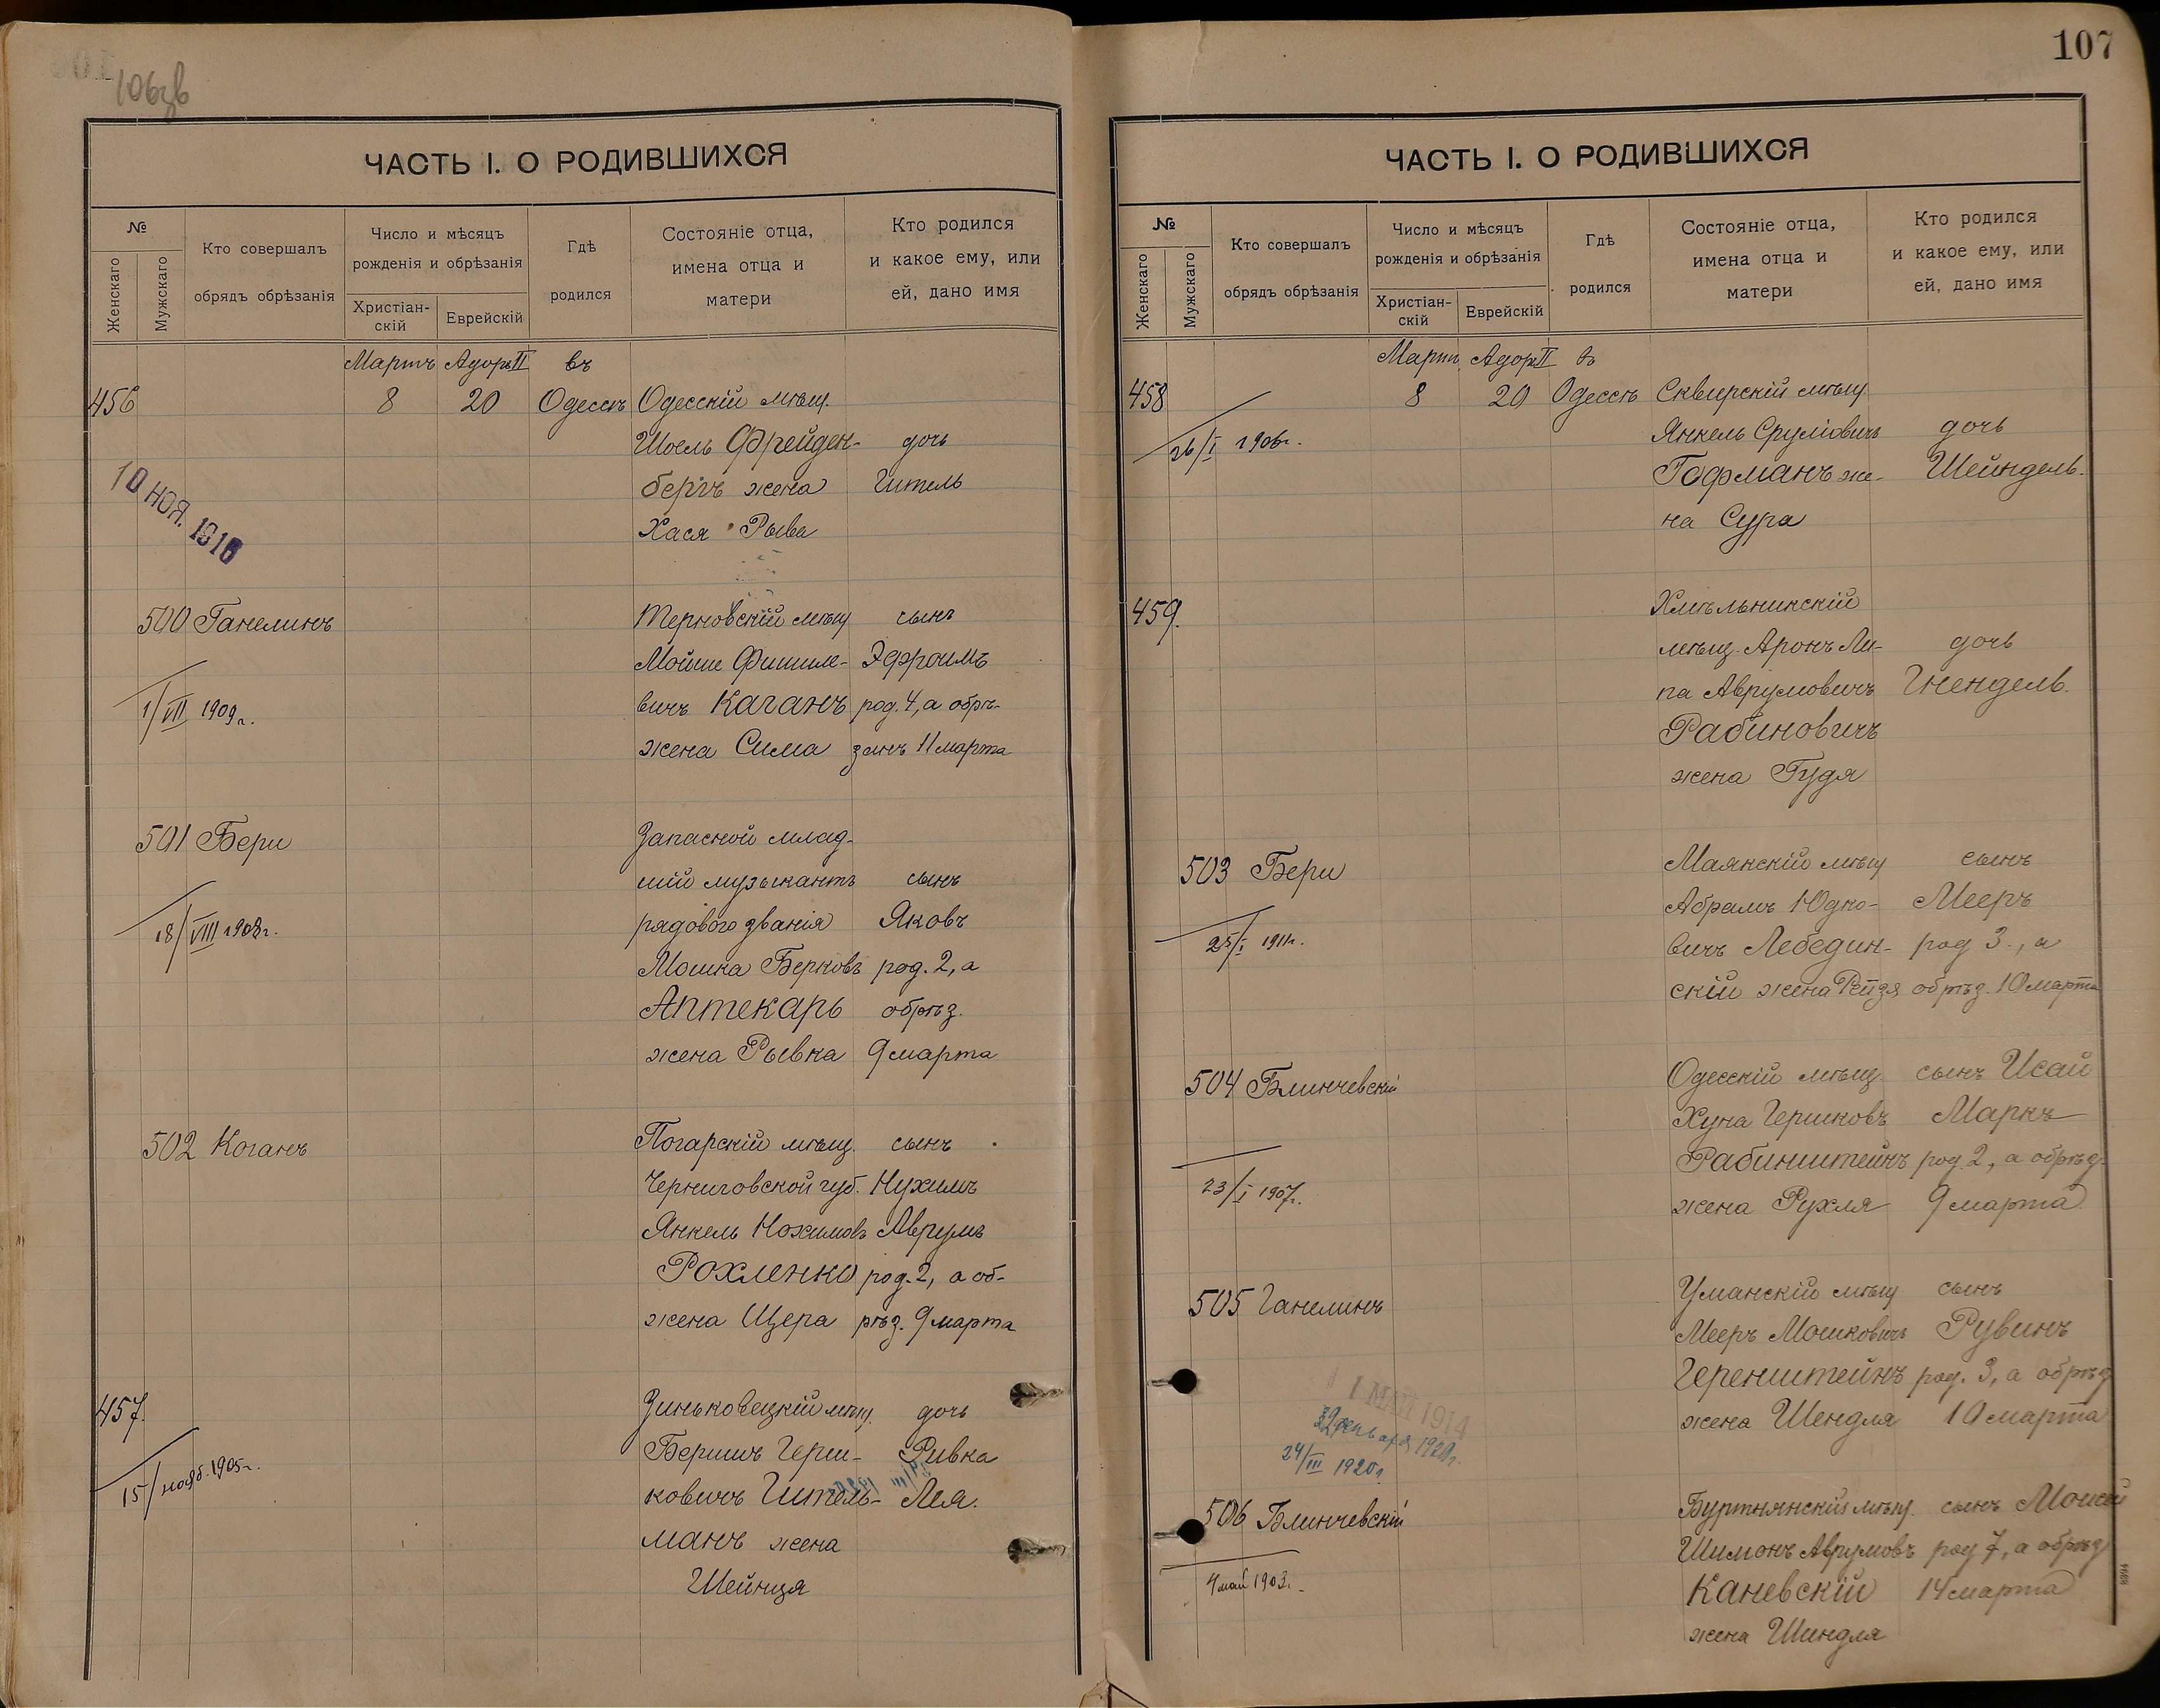 106зв
ЧАСТЬ I. О РОДИВШИХСЯ
№
Женскаго
Мужскаго
Кто совершалъ
обрядъ обрѣзанія
Число и мѣсяцъ
рожденія и обрѣзанія
Христіан-
скій
Еврейскій
Гдѣ
родился
Состояніе отца,
имена отца и
матери
Кто родился
и какое ему, или
ей, дано имя
Мартъ Адоръ II въ
456 8 20 Одессѣ Одесскій мѣщ.
Шоель Фрейден- дочь
бергъ жена Гитель
Хася Рыва
10 НОЯ. 1916
500 Ганелинъ Терновскій мѣщ сынъ
Мойше Фишиле- Эфроимъ
вичъ Каганъ род. 4, а обрѣ-
жена Сима занъ 11 марта
1/VII 1909 г.
501 Бери Запасной млад-
шій музыкантъ сынъ
рядового званія Яковъ
18/VIII 1908 г.
Мошка Берковъ род. 2, а
Аптекарь обрѣз.
жена Рывка 9 марта
502 Коганъ Погарскій мѣщ. сынъ
Черниговской губ. Нухимъ
Янкель Нохимовъ Аврумъ
Рохленко род. 2, а об-
жена Щера рѣз. 9 марта
457. Зиньковецкій мѣщ. дочь
Бершъ Герш- Ривка
15/нояб. 1905 г.
ковичъ Гитель- Лея.
манъ жена
Шейнця
107
ЧАСТЬ I. О РОДИВШИХСЯ
№
Женскаго
Мужскаго
Кто совершалъ
обрядъ обрѣзанія
Число и мѣсяцъ
рожденія и обрѣзанія
Христіан-
скій
Еврейскій
Гдѣ
родился
Состояніе отца,
имена отца и
матери
Кто родился
и какое ему, или
ей, дано имя
Мартъ Адоръ II въ
458 8 20 Одессѣ Сквирскій мѣщ.
Янкель Сруліовичъ дочь
26/I 1906 г.
Гофманъ же- Шейндель.
на Сура
459. Хмѣльникскій
мѣщ. Аронъ Ли- дочь
па Аврумовичъ Гнендель.
Рабиновичъ
жена Гудя
503 Бери Маянскій мѣщ сынъ
Абрамъ Юдко- Мееръ
25/I 1911 г.
вичъ Лебедин- род 3., а
скій жена Рейзя обрѣз. 10 марта
504 Блинчевскій Одесскій мѣщ. сынъ Исай
Хуна Гершковъ Маркъ
Рабинштейнъ род. 2, а обрѣз.
23/I 1907 г.
жена Рухля 9 марта
505 Ганелинъ Уманскій мѣщ сынъ
Мееръ Мошковичъ Рувинъ
Геренштейнъ род. 3, а обрѣз
1 МАЙ 1914
жена Шендля 10 марта
24/III 1920 г.
506 Блинчевскій мѣщ. сынъ Моисей
Шимонъ Аврумовъ род 7, а обрѣз
4 май 1903 г.
Каневскій 14 марта
жена Шиндля